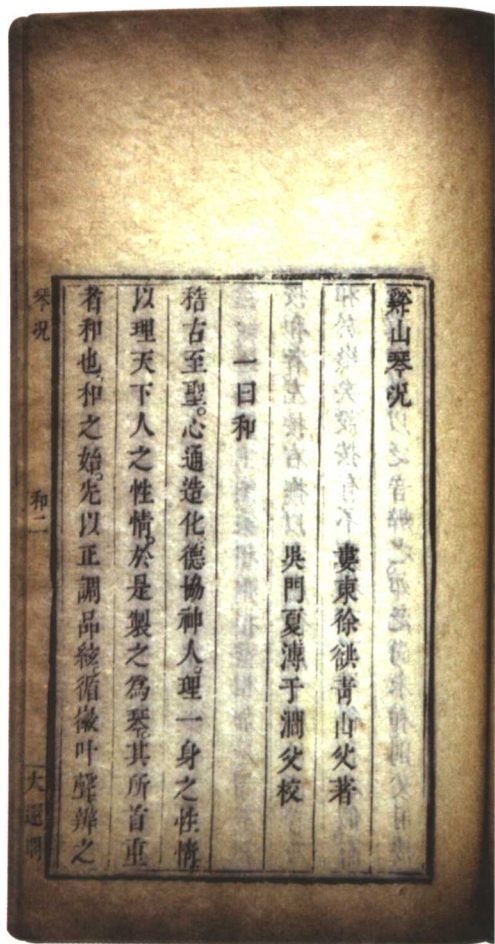 谿山琴況
婁東徐䤺青山父著
吳門夏溥于澗父校
一曰和
稽古至聖。心通造化德協神人。理一身之性情。
以理天下人之性情。於是製之為琴。其所首重
者和也、和之始。先以正調品絃循徽叶聲、辨之
琴況
和二
大還閣